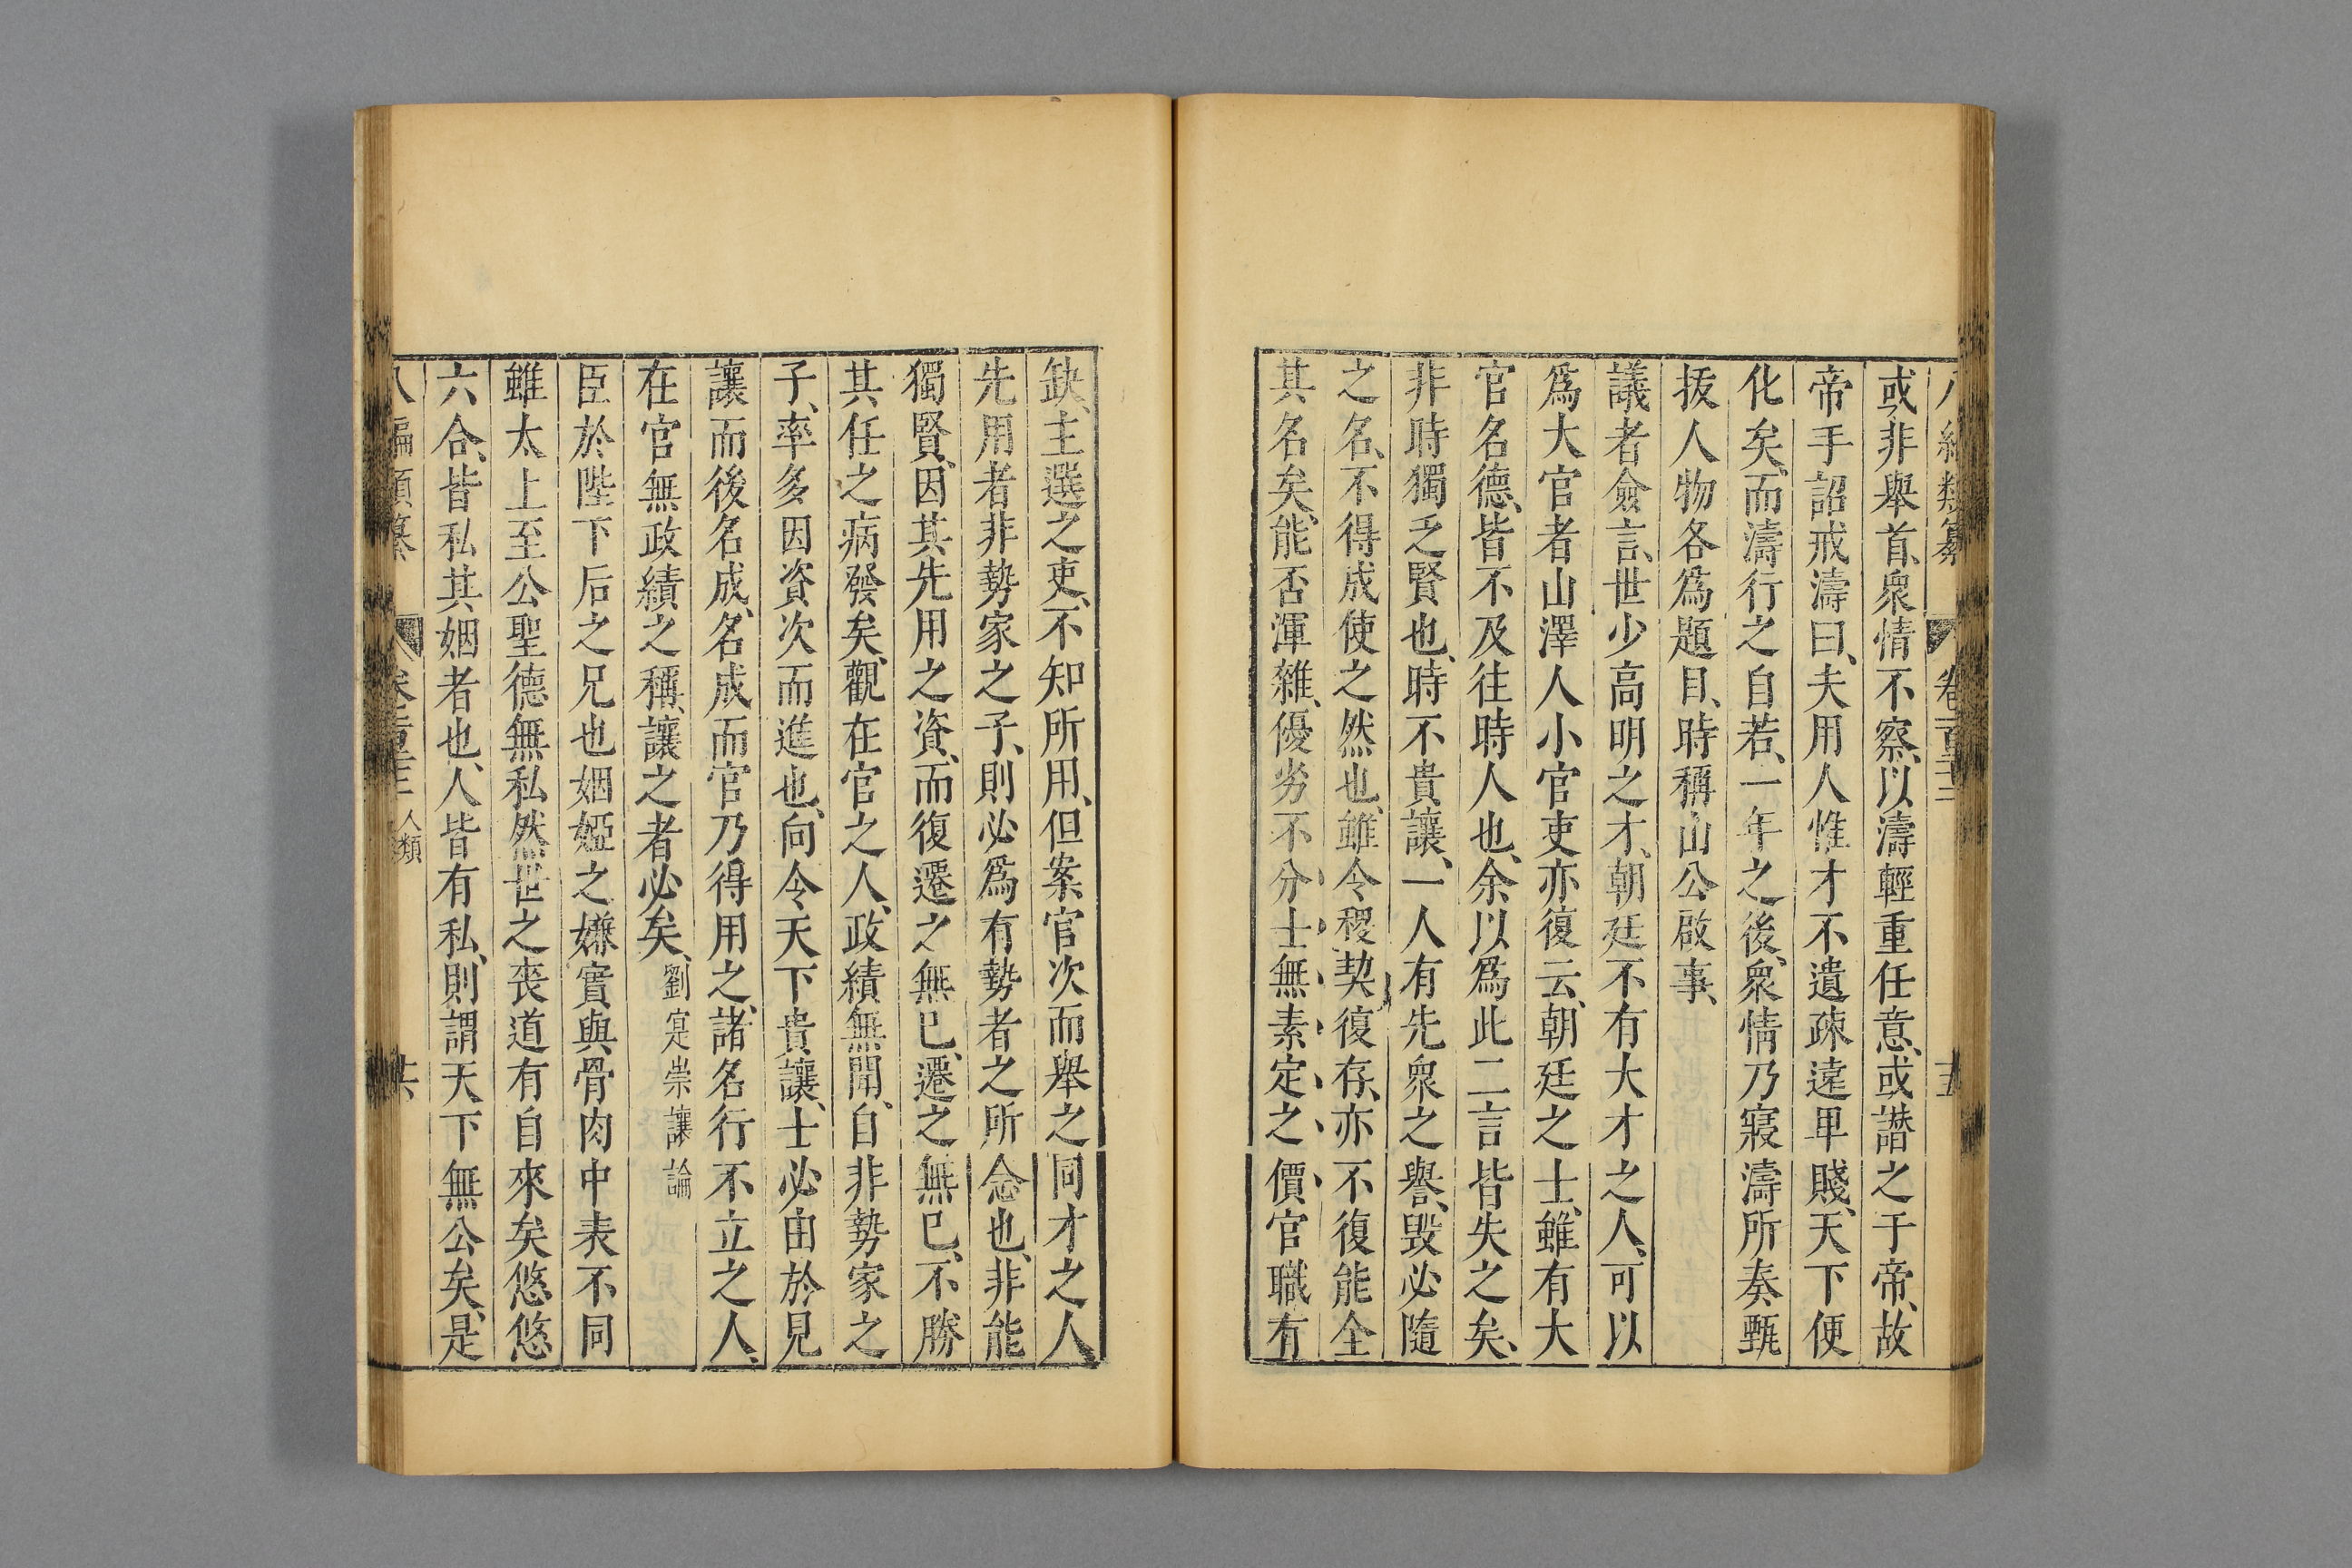 八編類纂 卷一百三十三 十五
或非舉首、衆情不察、以濤輕重任意、或譖之于帝、故
帝手詔戒濤曰、夫用人惟才不遺疎遠卑賤、天下便
化矣、而濤行之自若、一年之後、衆情乃寢濤所奏甄
拔人物各爲題目、時稱山公啟事、
議者僉言、世少高明之才、朝廷不有大才之人、可以
爲大官者山澤人小官吏亦復云、朝廷之士、雖有大
官名德、皆不及往時人也、余以爲此二言皆失之矣、
非時獨乏賢也、時不貴讓、一人有先衆之譽、毀必隨
之名、不得成使之然也、雖令稷契復存、亦不復能全
其名矣、能否渾雜、優劣不分、士無素定之價、官職有
缺、主選之吏、不知所用、但案官次而舉之同才之人、
先用者非勢家之子、則必爲有勢者之所念也、非能
獨賢、因其先用之資、而復遷之無已、遷之無已、不勝
其任之病發矣、觀在官之人、政績無聞、自非勢家之
子、率多因資次而進也、向令天下貴讓、士必由於見
讓而後名成、名成而官乃得用之、諸名行不立之人、
在官無政績之稱、讓之者必矣、劉寔崇讓論
臣於陛下后之兄也姻婭之嫌實與骨肉中表不同
雖太上至公聖德無私然世之喪道有自來矣悠悠
六合、皆私其姻者也、人皆有私、則謂天下無公矣、是
八編類纂 卷一百三十三 人類 十六